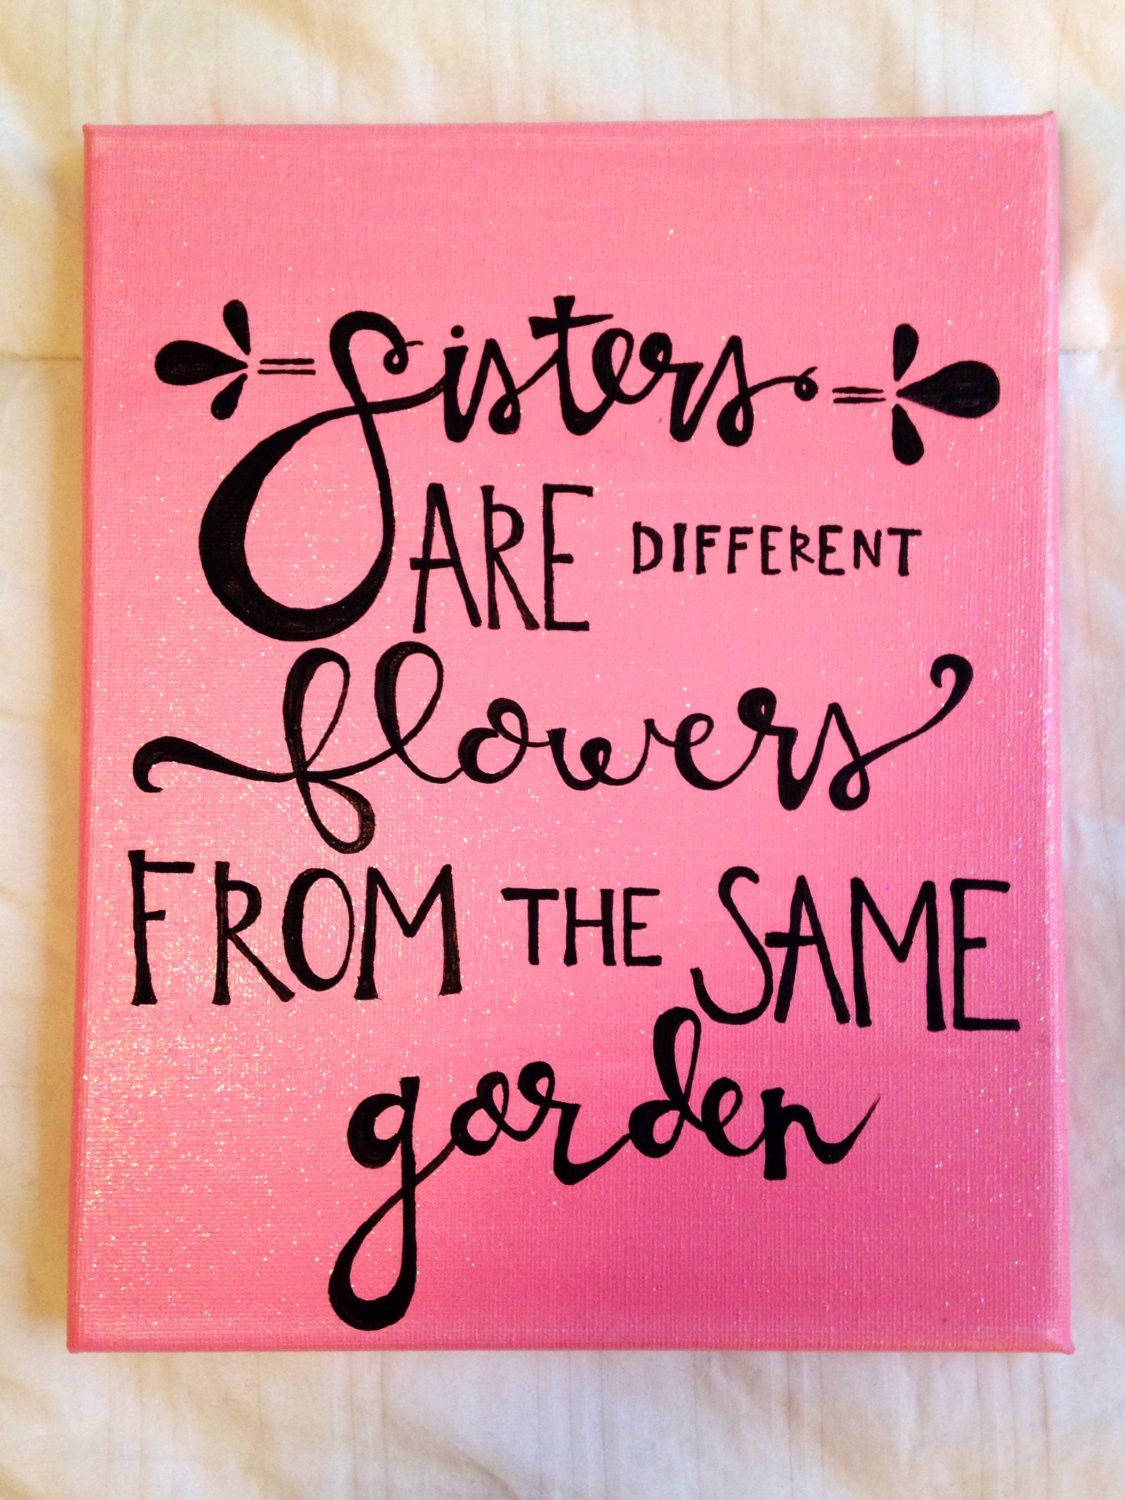 Sisters
ARE DIFFERENT
flowers
FROM THE SAME
garden